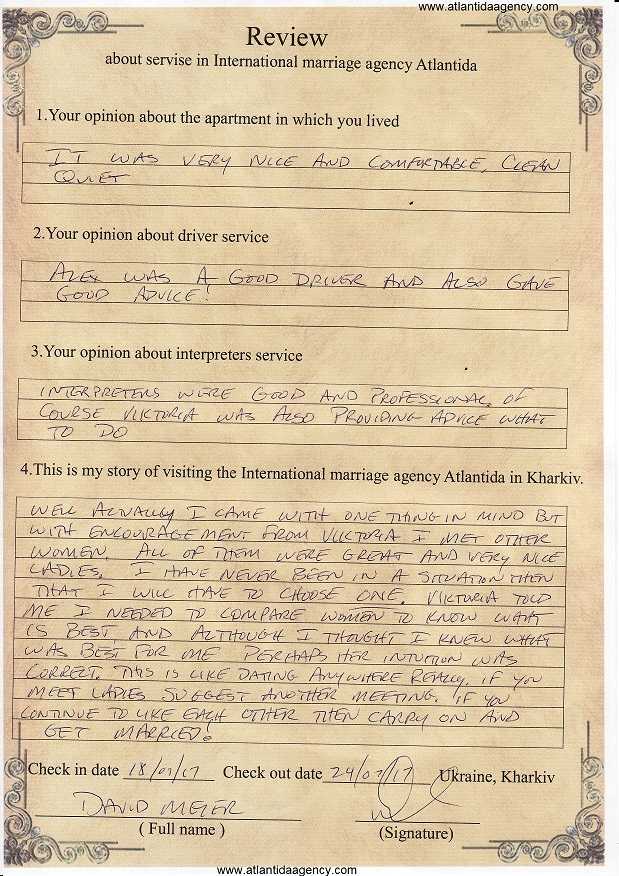 www.atlantidaagency.com
Review
about servise in International marriage agency Atlantida
1.Your opinion about the apartment in which you lived
IT WAS VERY NICE AND COMFORTABLE, CLEAN
QUIET
2.Your opinion about driver service
ALEX WAS A GOOD DRIVER AND ALSO GAVE
GOOD ADVICE!
3.Your opinion about interpreters service
INTERPRETERS WERE GOOD AND PROFESSIONAL, OF
COURSE VIKTORIA WAS ALSO PROVIDING ADVICE WHAT
TO DO
4.This is my story of visiting the International marriage agency Atlantida in Kharkiv.
WELL ACTUALLY I CAME WITH ONE THING IN MIND BUT
WITH ENCOURAGEMENT FROM VIKTORIA I MET OTHER
WOMEN. ALL OF THEM WERE GREAT AND VERY NICE
LADIES. I HAVE NEVER BEEN IN A SITUATION THEN
THAT I WILL HAVE TO CHOOSE ONE. VIKTORIA TOLD
ME I NEEDED TO COMPARE WOMEN TO KNOW WHAT
IS BEST, AND ALTHOUGH I THOUGHT I KNEW WHAT
WAS BEST FOR ME PERHAPS HER INTUITION WAS
CORRECT. THIS IS LIKE DATING ANYWHERE REALLY. IF YOU
MEET LADIES SUGGEST ANOTHER MEETING. IF YOU
CONTINUE TO LIKE EACH OTHER THEN CARRY ON AND
GET MARRIED!
Check in date 18/07/17 Check out date 24/07/17 Ukraine, Kharkiv
DAVID MEIER
( Full name ) (Signature)
www.atlantidaagency.com